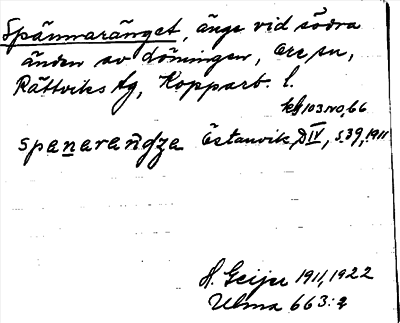 Spännaränget, änge vid södra
änden av döningen, Ore sn,
Rättviks tg, Kopparb. l.
kbl 103 NO, 66
spanarandza Östanvik, D IV, s. 39, 1911
H. Geijer 1911, 1922
Ulma 663:2